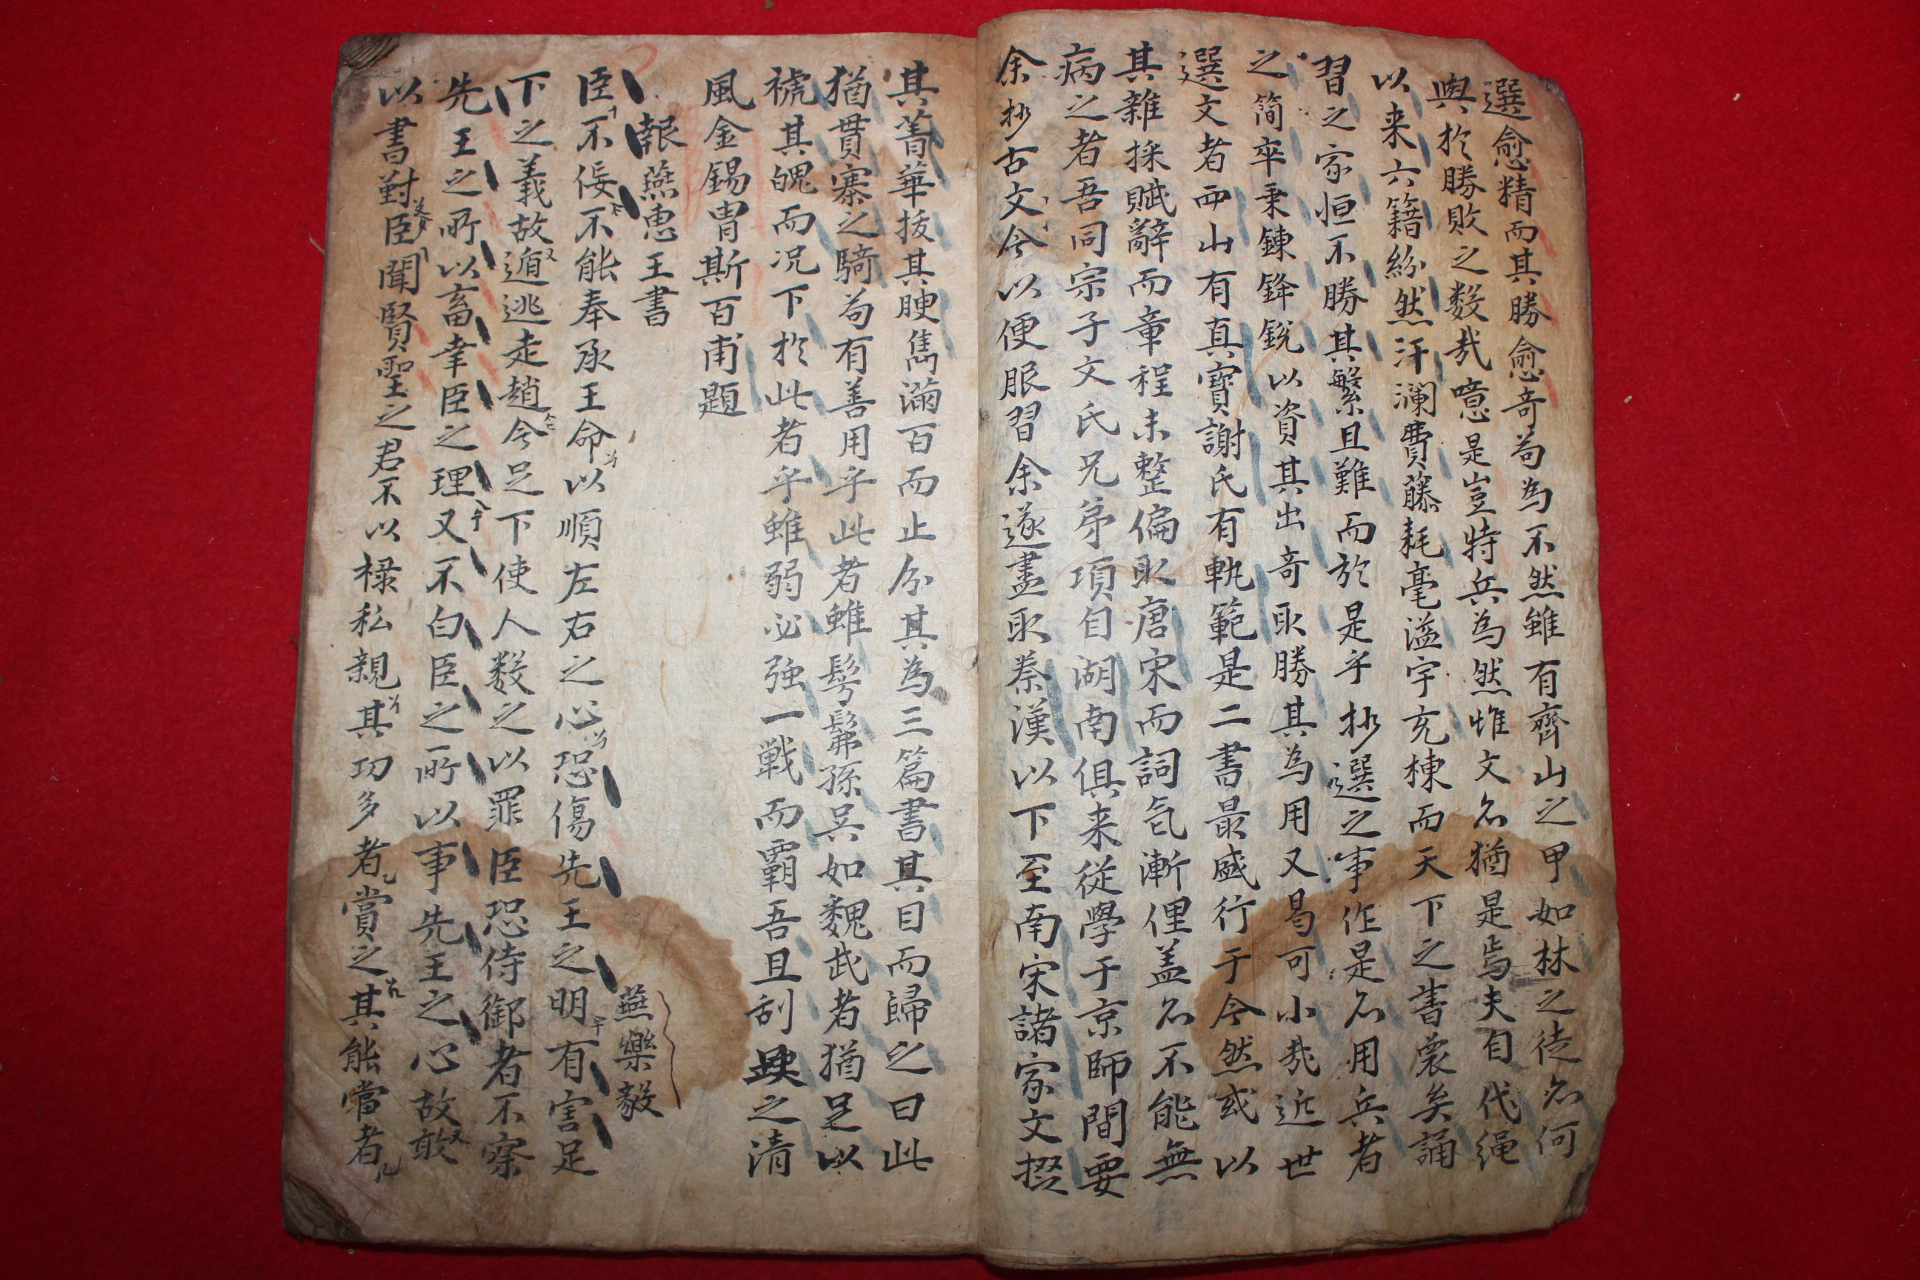 選愈精而其勝愈奇苟為不然雖有齊山之甲如林之徒名何
與於勝敗之数哉噫是豈特兵為然惟文名猶是焉夫自代繩
以来六籍紛然汗瀾費藤耗毫溢宇充棟而天下之書裒矣誦
習之家恒不勝其繁且難而於是乎抄選之事作是名用兵者
之简卒秉鍊鋒銳以資其出奇取勝其為用又曷可小哉近世
選文者西山有真寶謝氏有軌範是二書最盛行于今然或以
其雜採賦辭而章程未整偏取唐宋而詞氣漸俚盖名不能無
病之者吾同宗子文氏兄弟項自湖南俱来從學于京師間要
余抄古文今以便服習余遂盡取秦漢以下至南宋諸家文掇
其菁華拔其腴雋滿百而止分其為三篇書其目而歸之曰此
猶貫寨之騎苟有善用乎此者雖髣髴孫吳如魏武者猶足以
褫其魄而况下於此者乎雖弱必強一戦而霸吾且刮踈之清
風金錫胄斯百甫題
報燕惠王書
燕樂毅
臣不佞不能奉承王命以順左右之心恐傷先王之明有害足
下之義故遁逃走趙今足下使人数之以罪臣恐侍御者不察
先王之所以畜幸臣之理又不白臣之所以事先王之心故敢
以書對臣聞賢聖之君不以祿私親其功多者賞之其能當者